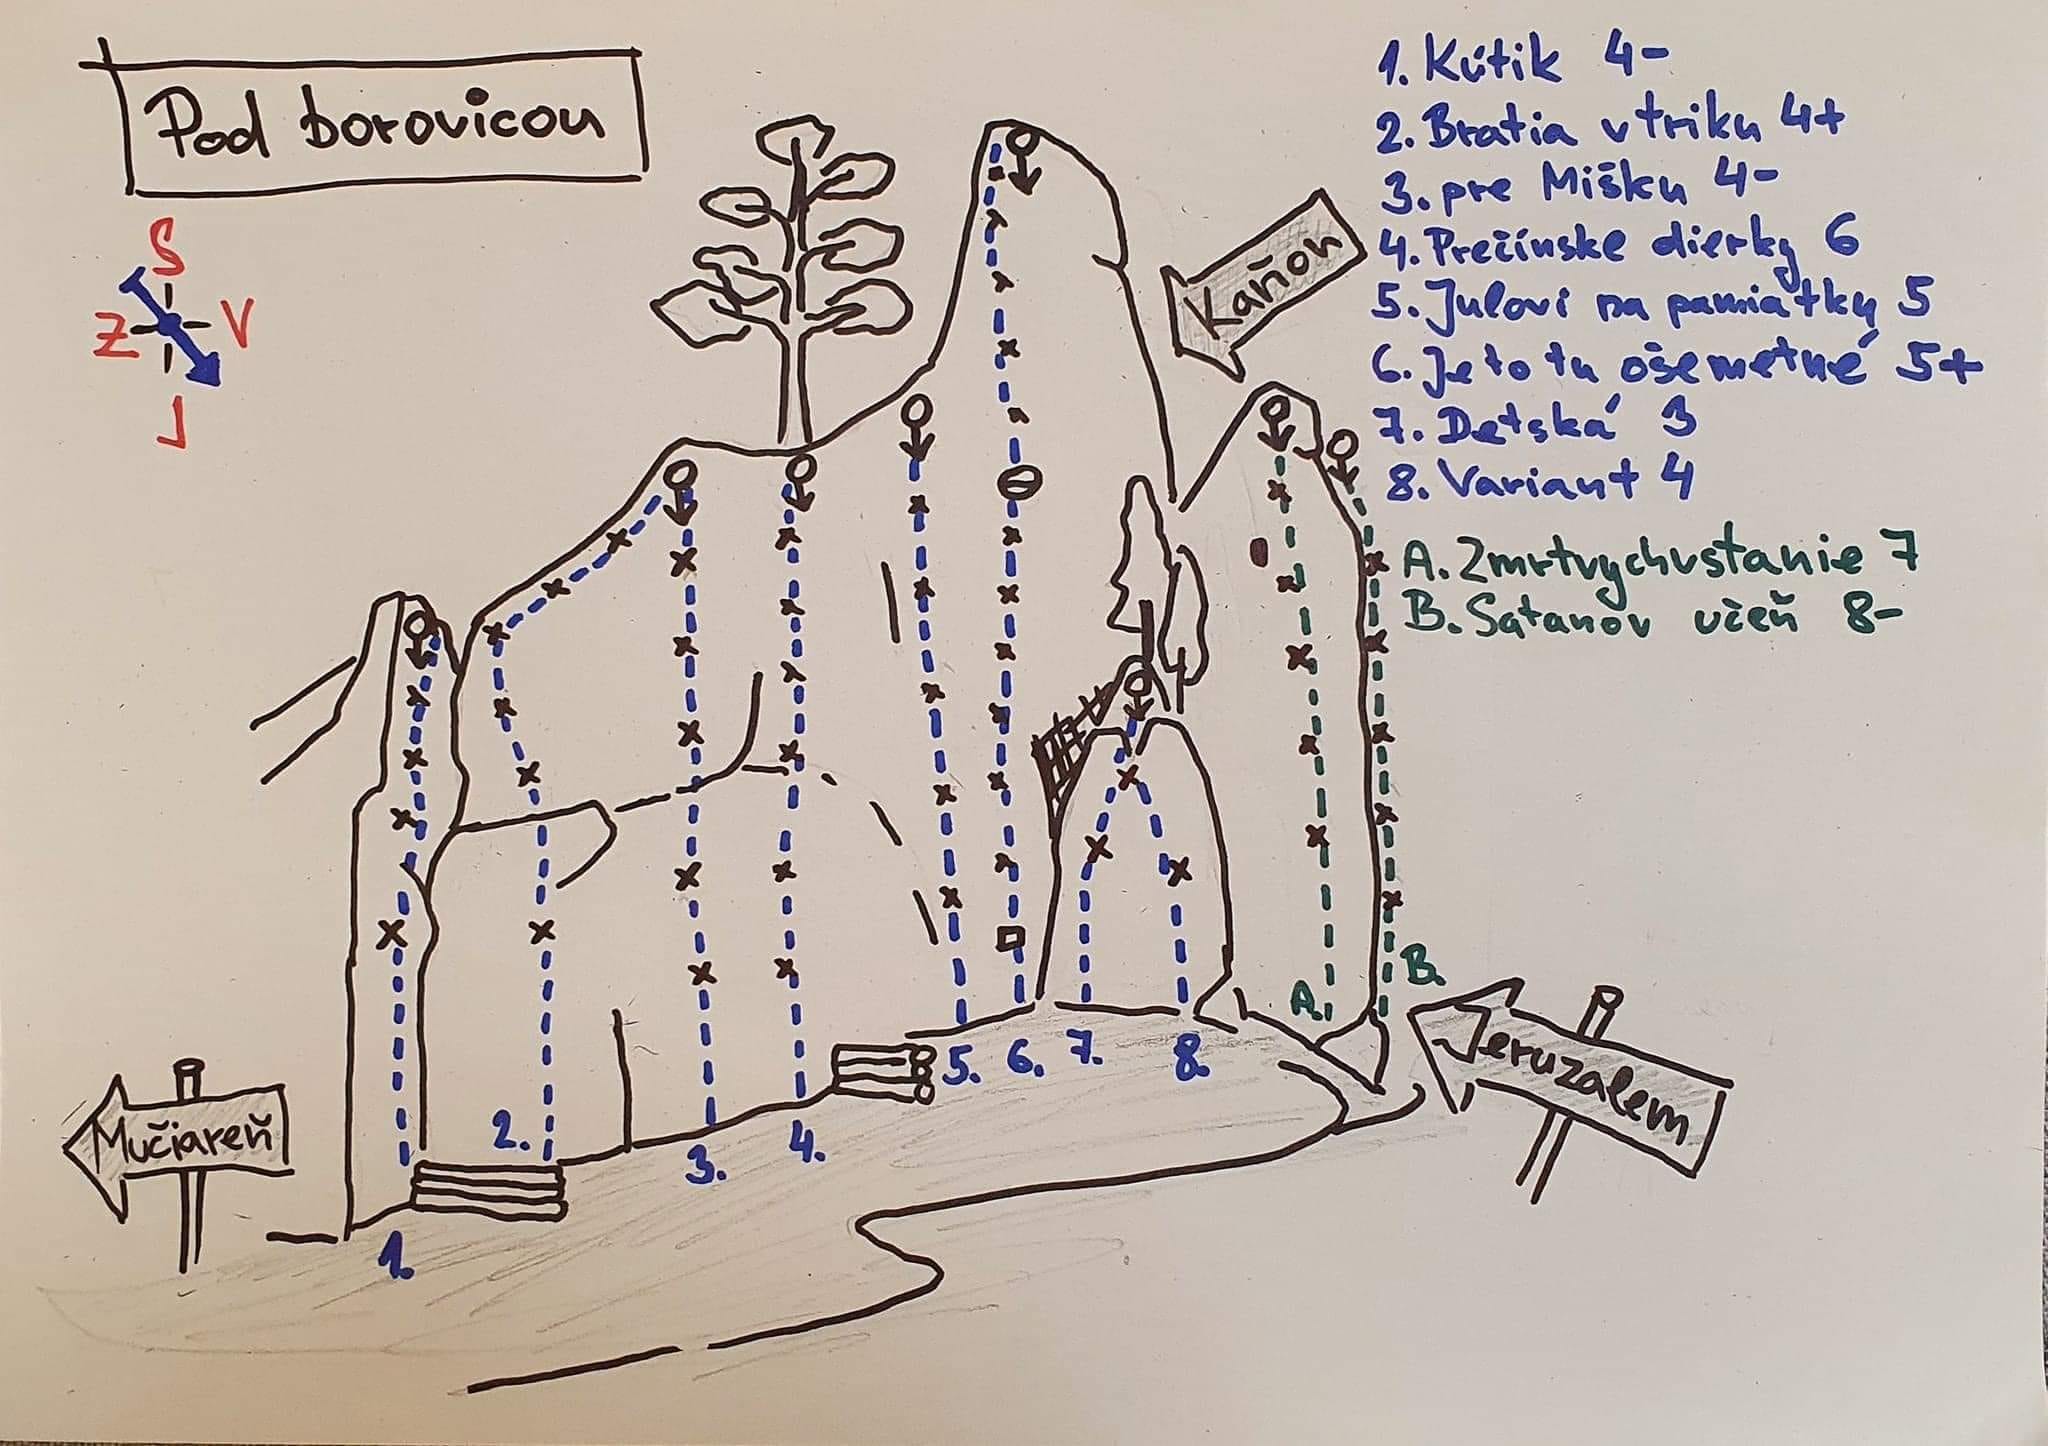 Pod borovicou
S
Z V
J
Kaňon
1. Kútik 4-
2. Bratia v triku 4+
3. pre Mišku 4-
4. Prečínske dierky 6
5. Julovi na pamiatky 5
6. Je to tu ošemetné 5+
7. Detská 3
8. Variant 4
A. Zmrtvychvstanie 7
B. Satanov učeň 8-
A. B.
Mučiareň
Jeruzalem
1. 2. 3. 4. 5. 6. 7. 8.